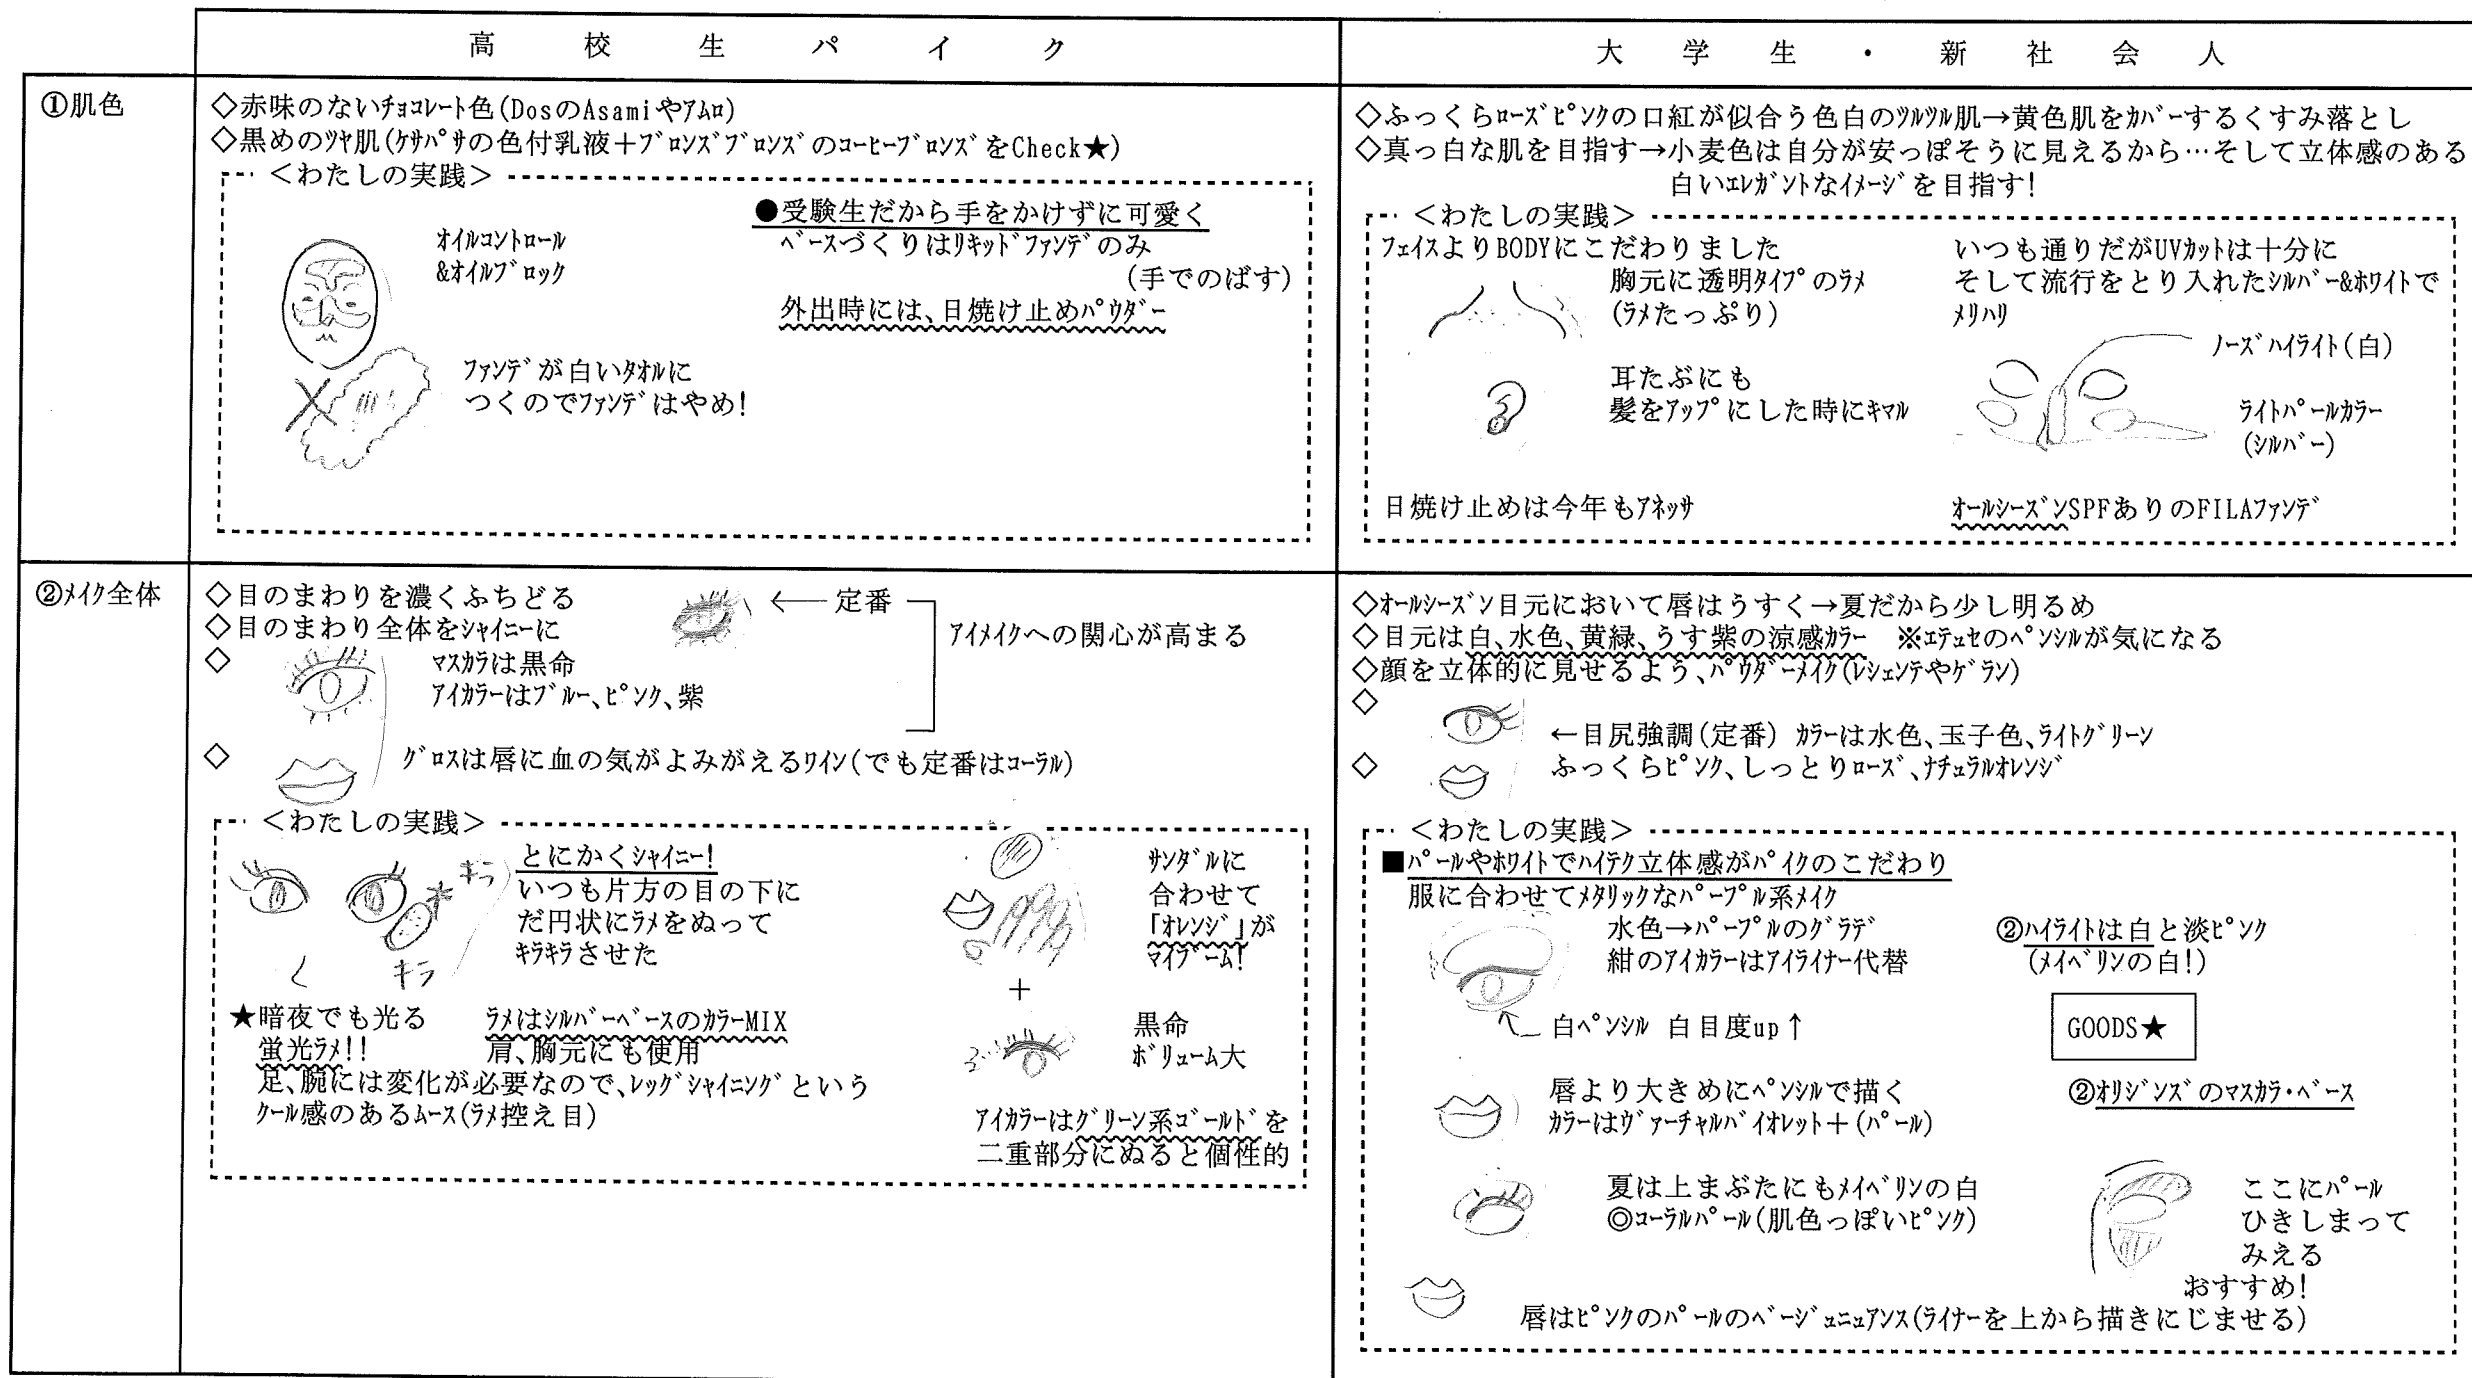 高校生パイク
大学生・新社会人
①肌色
◇赤味のないﾁｮｺﾚｰﾄ色(DosのAsamiやｱﾑﾛ)
◇黒めのﾂﾔ肌(ｹｻﾊﾟｻの色付乳液＋ﾌﾞﾛﾝｽﾞﾌﾞﾛﾝｽﾞのｺｰﾋｰﾌﾞﾛﾝｽﾞをCheck★)
＜わたしの実践＞
●受験生だから手をかけずに可愛く
ﾍﾞｰｽづくりはﾘｷｯﾄﾞﾌｧﾝﾃﾞのみ
(手でのばす)
外出時には、日焼け止めﾊﾟｳﾀﾞｰ
ｵｲﾙｺﾝﾄﾛｰﾙ
&ｵｲﾙﾌﾞﾛｯｸ
ﾌｧﾝﾃﾞが白いﾀｵﾙに
つくのでﾌｧﾝﾃﾞはやめ!
◇ふっくらﾛｰｽﾞﾋﾟﾝｸの口紅が似合う色白のﾂﾙﾂﾙ肌→黄色肌をｶﾊﾞｰするくすみ落とし
◇真っ白な肌を目指す→小麦色は自分が安っぽそうに見えるから…そして立体感のある
白いｴﾚｶﾞﾝﾄなｲﾒｰｼﾞを目指す!
＜わたしの実践＞
ﾌｪｲｽよりBODYにこだわりました
胸元に透明ﾀｲﾌﾟのﾗﾒ
(ﾗﾒたっぷり)
耳たぶにも
髪をｱｯﾌﾟにした時にｷﾏﾙ
日焼け止めは今年もｱﾈｯｻ
いつも通りだがUVｶｯﾄは十分に
そして流行をとり入れたｼﾙﾊﾞｰ&ﾎﾜｲﾄで
ﾒﾘﾊﾘ
ﾉｰｽﾞﾊｲﾗｲﾄ(白)
ﾗｲﾄﾊﾟｰﾙｶﾗｰ
(ｼﾙﾊﾞｰ)
ｵｰﾙｼｰｽﾞﾝSPFありのFILAﾌｧﾝﾃﾞ
②ﾒｲｸ全体
◇目のまわりを濃くふちどる
←― 定番
◇目のまわり全体をｼｬｲﾆｰに
ｱｲﾒｲｸへの関心が高まる
◇
ﾏｽｶﾗは黒命
ｱｲｶﾗｰはﾌﾞﾙｰ、ﾋﾟﾝｸ、紫
◇ｸﾞﾛｽは唇に血の気がよみがえるﾜｲﾝ(でも定番はｺｰﾗﾙ)
＜わたしの実践＞
とにかくｼｬｲﾆｰ!
いつも片方の目の下に
だ円状にﾗﾒをぬって
ｷﾗｷﾗさせた
キラ
キラ
★暗夜でも光る
蛍光ﾗﾒ!!
ﾗﾒはｼﾙﾊﾞｰﾍﾞｰｽのｶﾗｰMIX
肩、胸元にも使用
足、腕には変化が必要なので、ﾚｯｸﾞｼｬｲﾆﾝｸﾞという
ｸｰﾙ感のあるﾑｰｽ(ﾗﾒ控え目)
ｻﾝﾀﾞﾙに
合わせて
「ｵﾚﾝｼﾞ」が
ﾏｲﾌﾞｰﾑ!
＋
黒命
ﾎﾞﾘｭｰﾑ大
ｱｲｶﾗｰはｸﾞﾘｰﾝ系ｺﾞｰﾙﾄﾞを
二重部分にぬると個性的
◇ｵｰﾙｼｰｽﾞﾝ目元において唇はうすく→夏だから少し明るめ
◇目元は白、水色、黄緑、うす紫の涼感ｶﾗｰ　※ｴﾃｭｾのﾍﾟﾝｼﾙが気になる
◇顔を立体的に見せるよう、ﾊﾟｳﾀﾞｰﾒｲｸ(ﾚｼｪﾝﾃやｹﾞﾗﾝ)
◇
←目尻強調(定番) ｶﾗｰは水色、玉子色、ﾗｲﾄｸﾞﾘｰﾝ
◇ふっくらﾋﾟﾝｸ、しっとりﾛｰｽﾞ、ﾅﾁｭﾗﾙｵﾚﾝｼﾞ
＜わたしの実践＞
■ﾊﾟｰﾙやﾎﾜｲﾄでﾊｲﾃｸ立体感がﾊﾟｲｸのこだわり
服に合わせてﾒﾀﾘｯｸなﾊﾟｰﾌﾟﾙ系ﾒｲｸ
水色→ﾊﾟｰﾌﾟﾙのｸﾞﾗﾃﾞ
紺のｱｲｶﾗｰはｱｲﾗｲﾅｰ代替
白ﾍﾟﾝｼﾙ 白目度up↑
②ﾊｲﾗｲﾄは白と淡ﾋﾟﾝｸ
(ﾒｲﾍﾞﾘﾝの白!)
GOODS★
唇より大きめにﾍﾟﾝｼﾙで描く
ｶﾗｰはｳﾞｧｰﾁｬﾙﾊﾞｲｵﾚｯﾄ＋(ﾊﾟｰﾙ)
②ｵﾘｼﾞﾝｽﾞのﾏｽｶﾗ・ﾍﾞｰｽ
夏は上まぶたにもﾒｲﾍﾞﾘﾝの白
◎ｺｰﾗﾙﾊﾟｰﾙ(肌色っぽいﾋﾟﾝｸ)
ここにﾊﾟｰﾙ
ひきしまって
みえる
おすすめ!
唇はﾋﾟﾝｸのﾊﾟｰﾙのﾍﾞｰｼﾞｭﾆｭｱﾝｽ(ﾗｲﾅｰを上から描きにじませる)